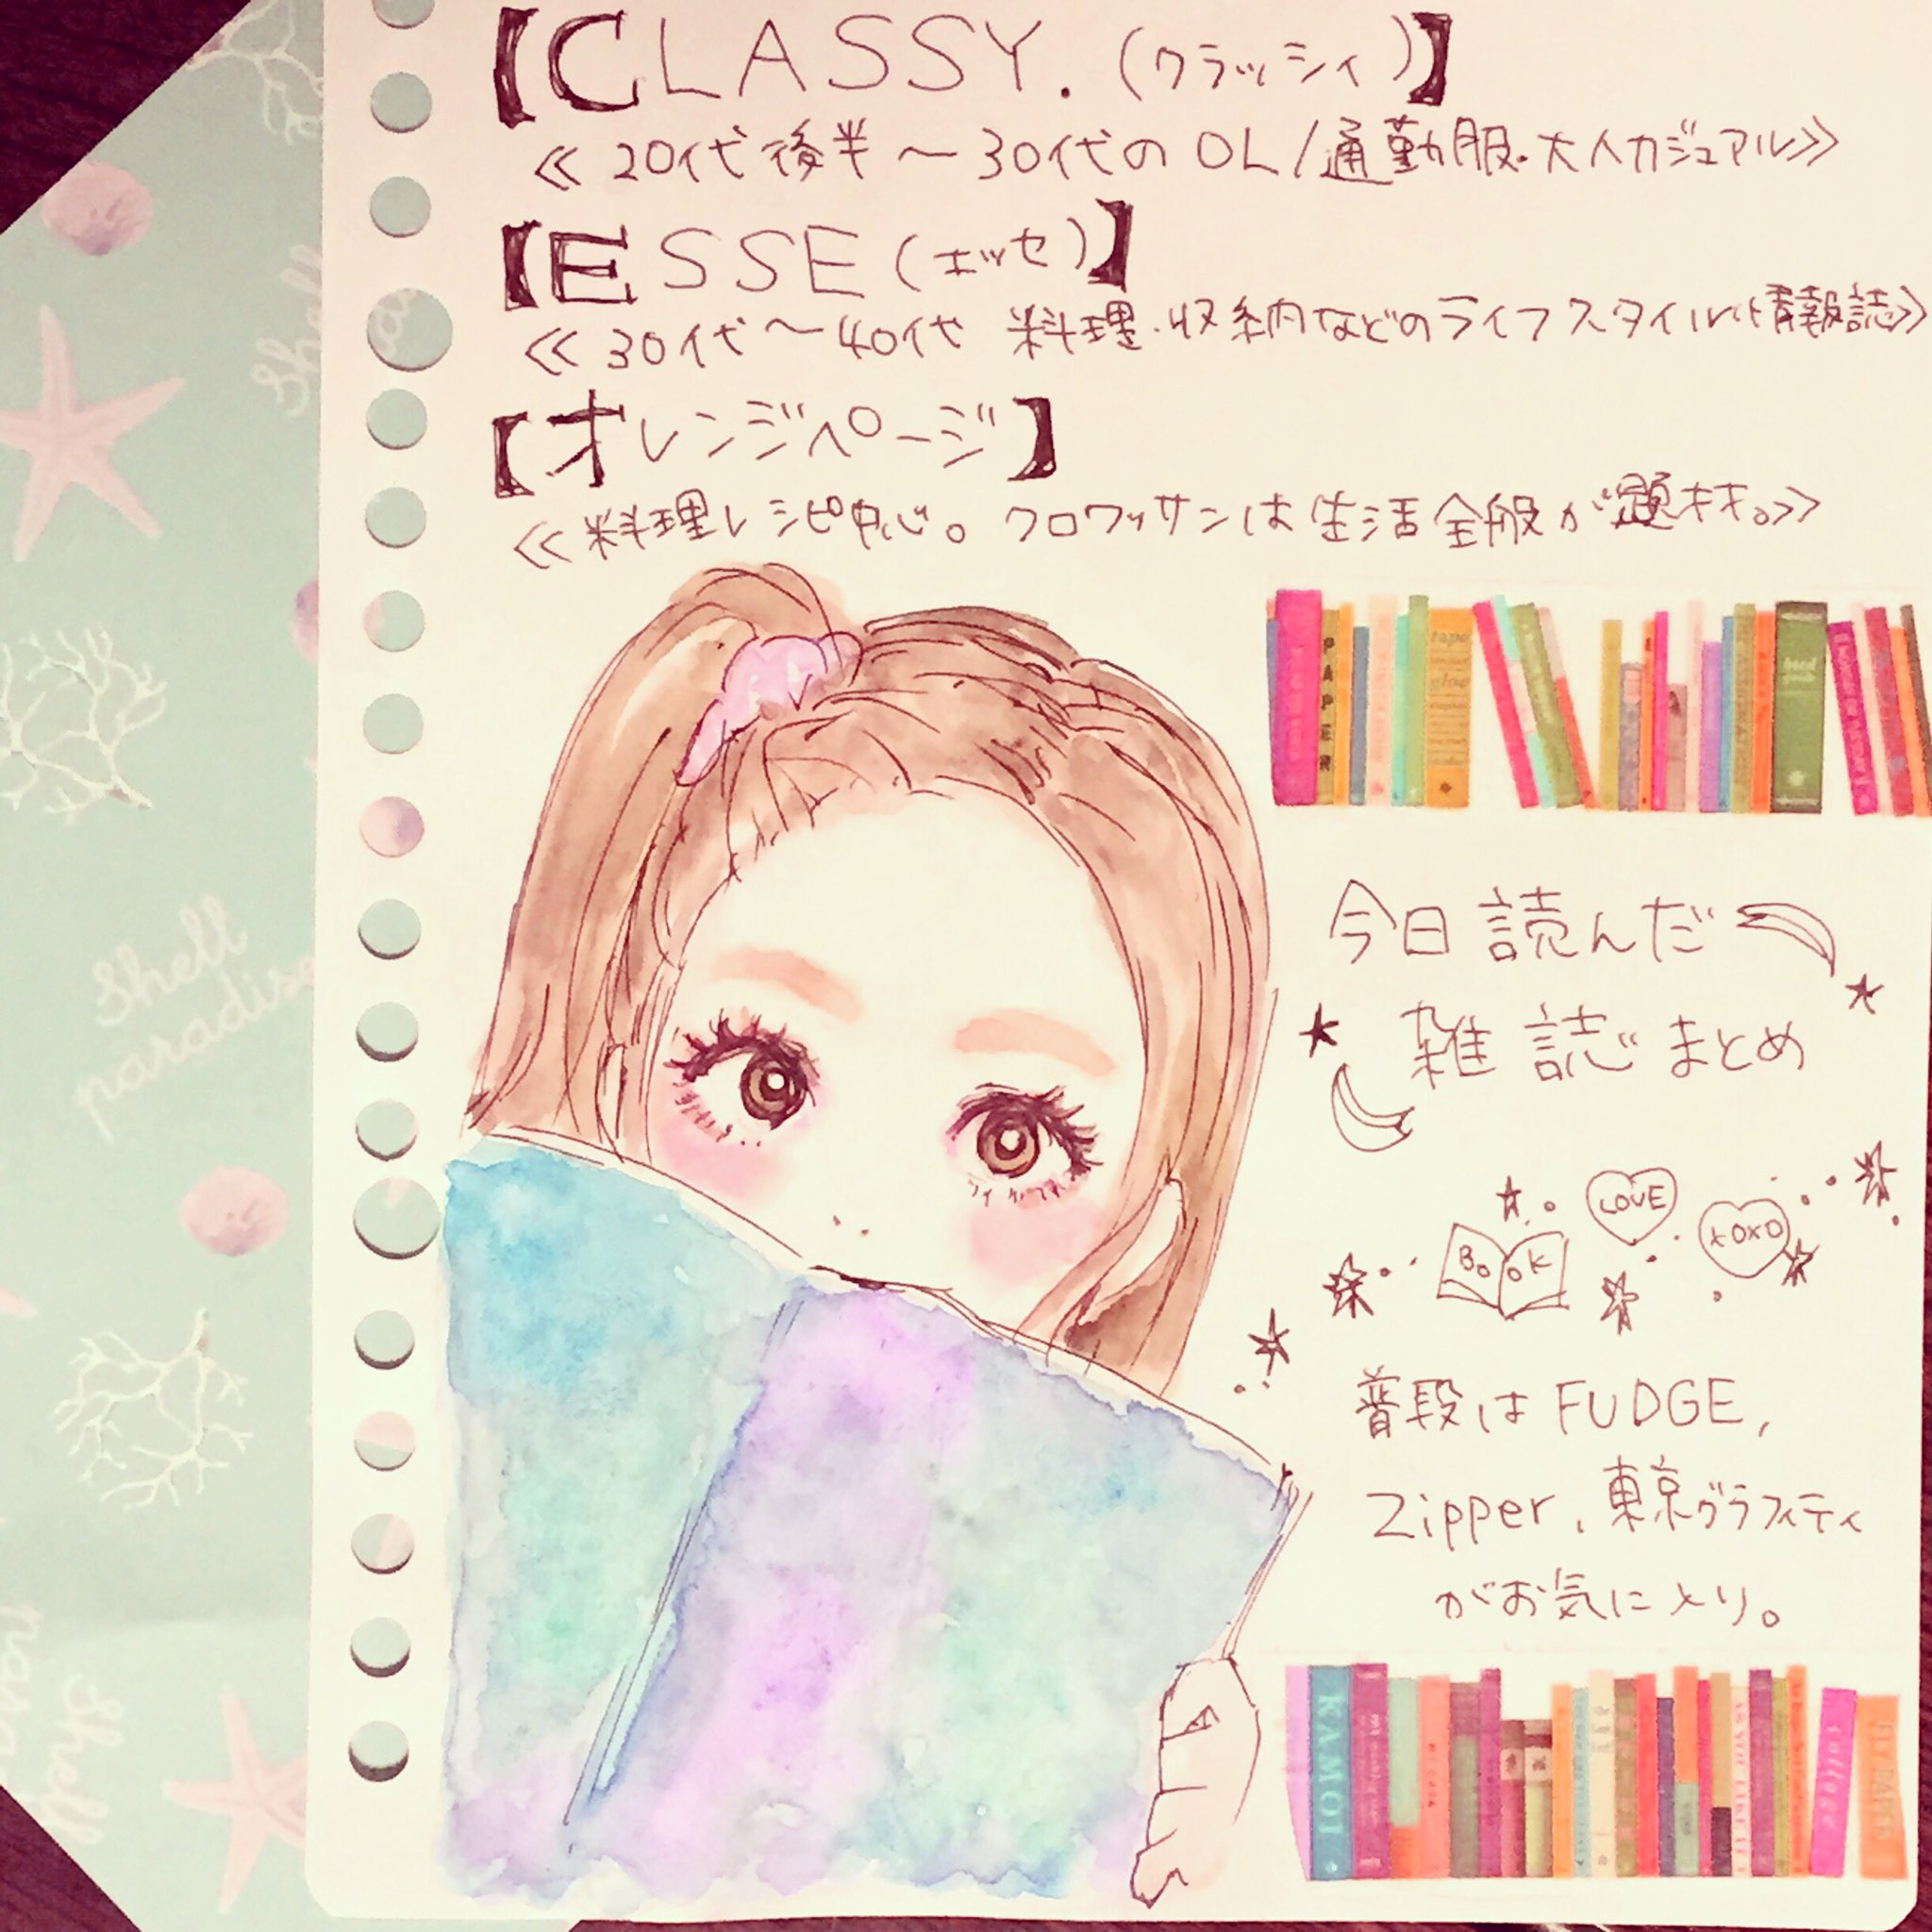 【CLASSY.(クラッシィ)】
≪20代後半～30代のOL/通勤服・大人カジュアル≫
【ESSE(エッセ)】
≪30代～40代 料理・収納などのライフスタイル情報誌≫
【オレンジページ】
≪料理レシピ中心。クロワッサンは生活全般が題材。≫
PAPER
tape
今日読んだ
雑誌まとめ
LOVE
XOXO
BOOK
普段はFUDGE,
Zipper、東京グラフィティ
がお気に入り。
KAMOI
Shell
paradise
Shell
Shell